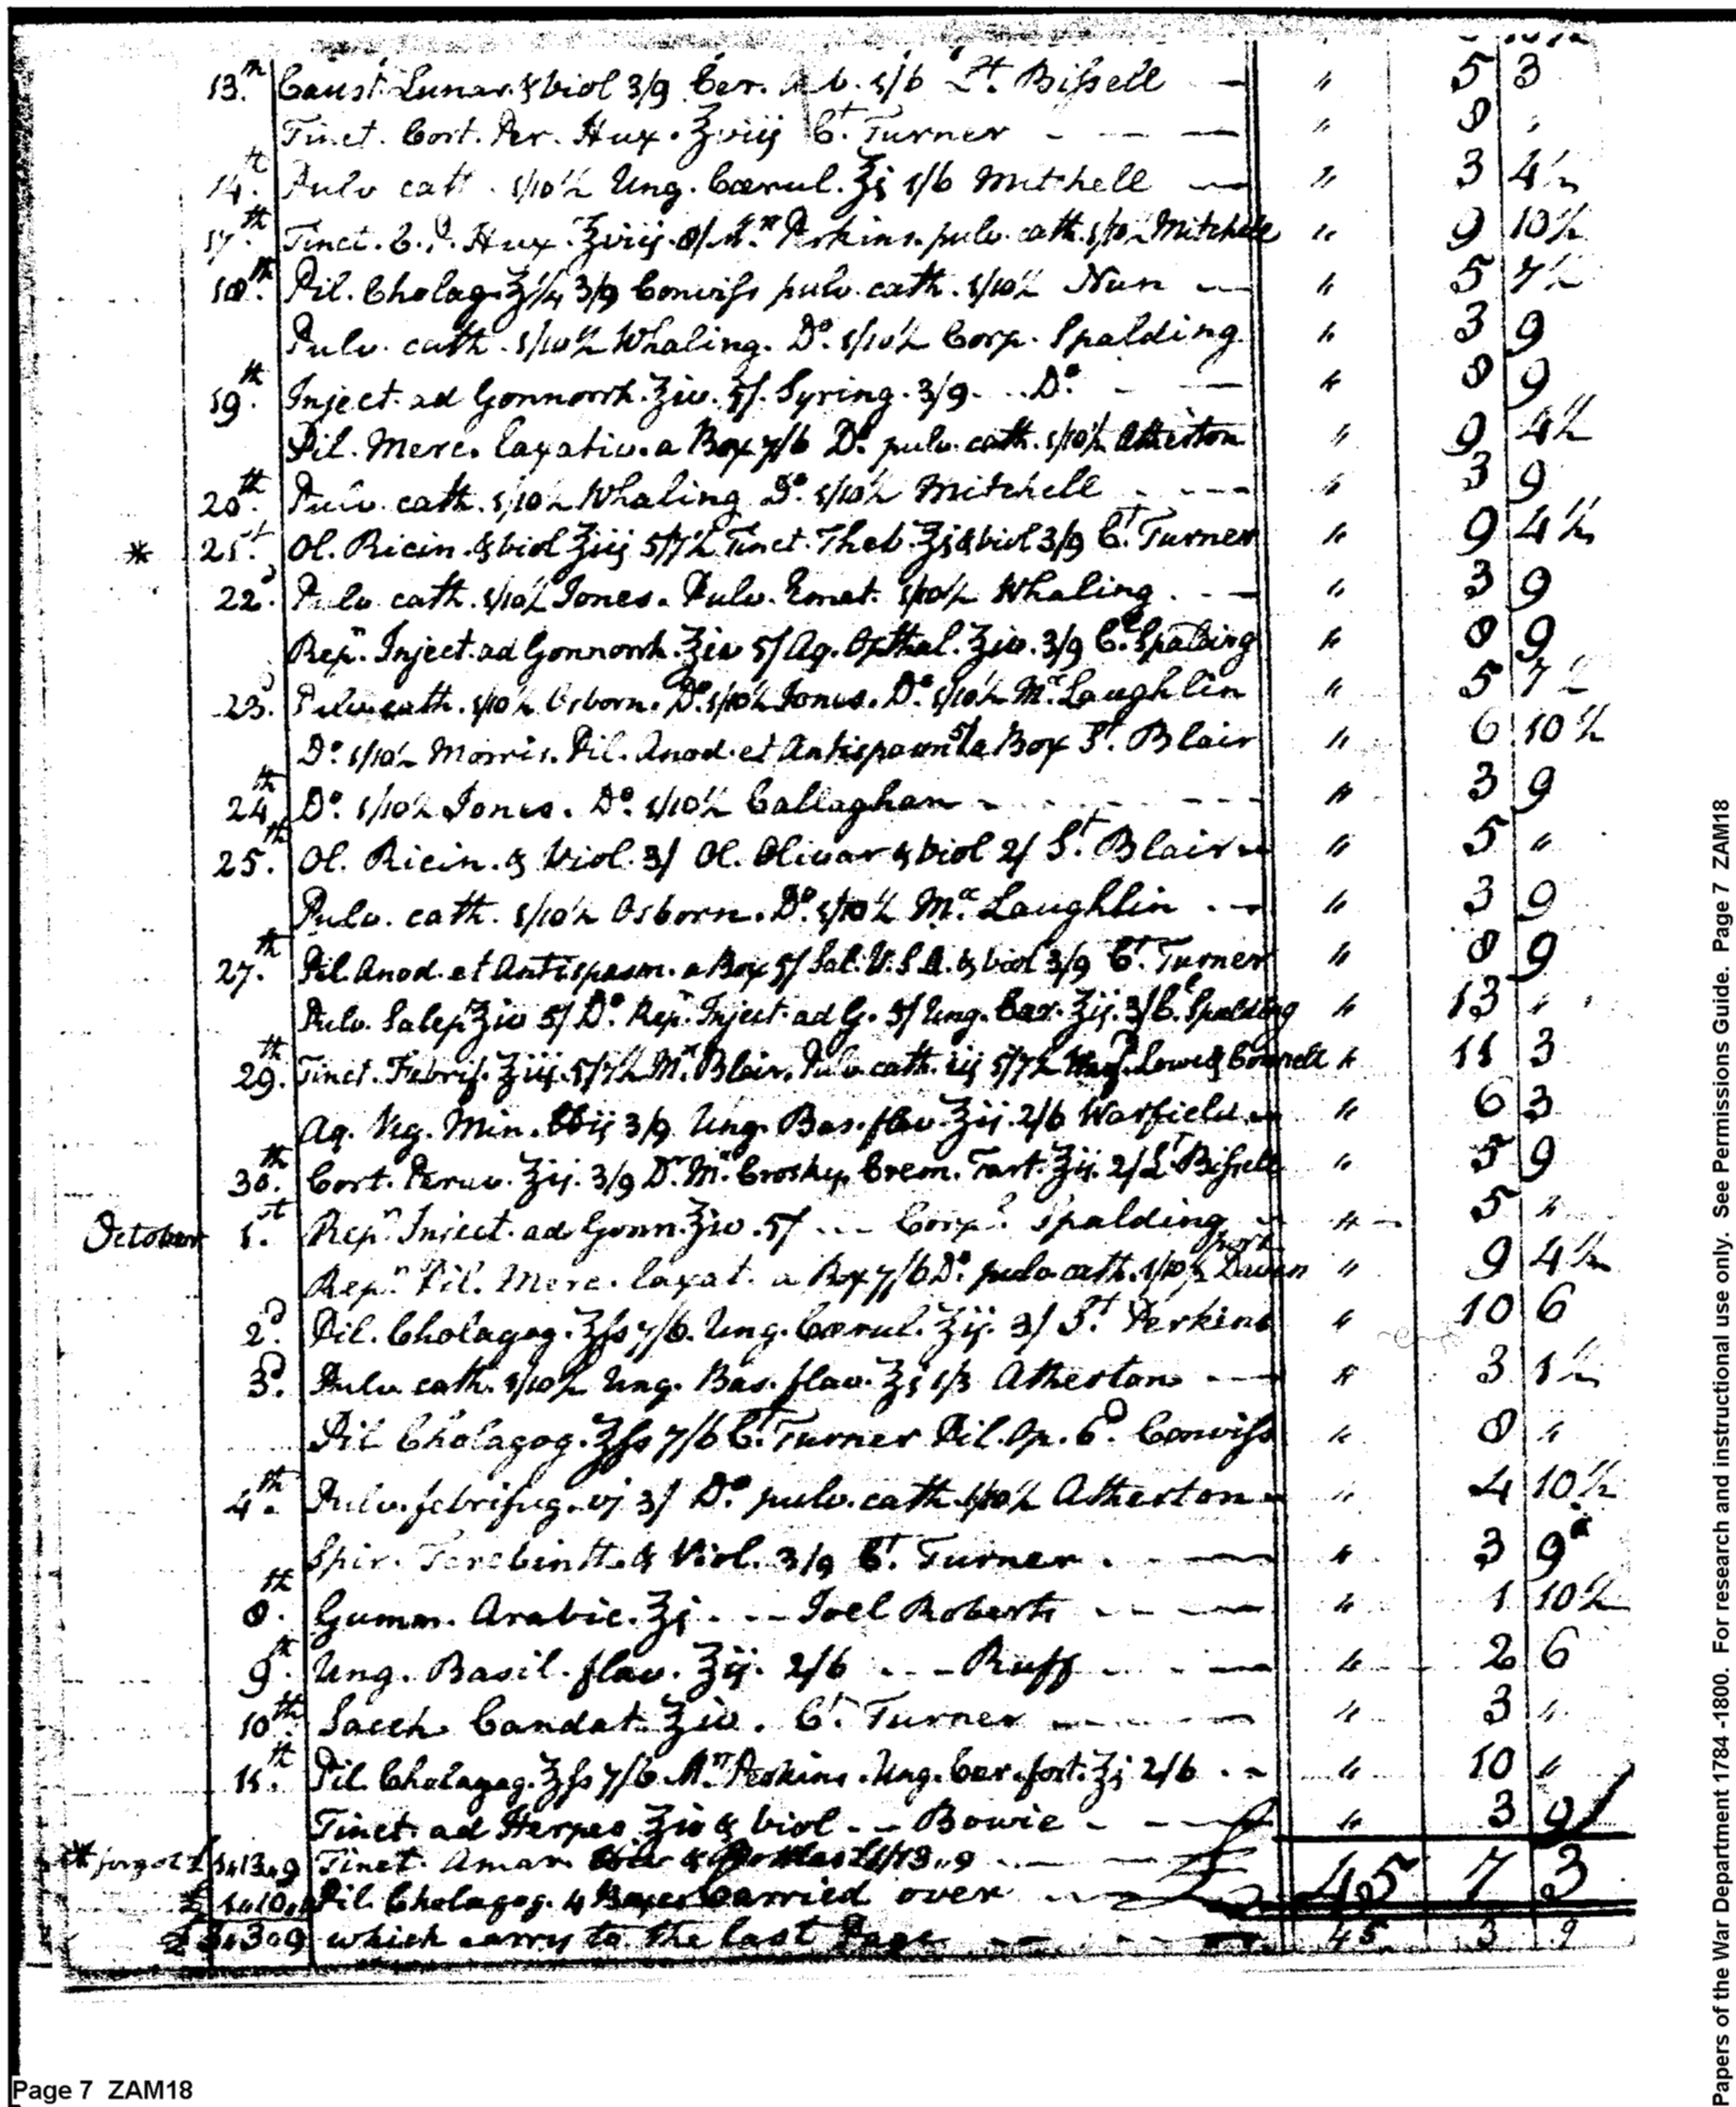 13.th Caust. Lunar. & viol 3/9 Cer. Alb. 1/6 Lt. Bissell — " 5 3
Tinct. Cort. Per. Hux. ℥viij Ct. Turner - — — " 8 "
14.th Pulv cath. 1/10½ Ung. Cærul. ℥j 1/6 Mitchell — " 3 4½
17.th Tinct. C. P. Hux. ℥viij. 8/ Mrs. Perkins. pulv. cath. 1/10½ Mitchell " 9 10½
18.th Pil. Cholag. ℥¼ 3/9 Conviss pulv. cath. 1/10½ Nun — " 5 7½
Pulv. cath. 1/10½ Whaling. Do. 1/10½ Corp. Spalding " 3 9
19.th Inject. ad Gonnorrh. ℥iv. 5/. Syring. 3/9. .. Do. - — " 8 9
Pil. Merc. laxativ. a Box 7/6 Do. pulv. cath. 1/10½ Atherton " 9 4½
20.th Pulv. cath. 1/10½ Whaling Do. 1/10½ Mitchell - - - — " 3 9
* 21.st Ol. Ricin. & viol ℥iij 5/7½ Tinct. Theb. ℥j & viol 3/9 Ct. Turner " 9 4½
22.d Pulv cath. 1/10½ Jones. Pulv. Emet. 1/10½ Whaling. - — " 3 9
Repn. Inject. ad Gonnorrh. ℥iv 5/ Aq. Opthal. ℥iv. 3/9 Cl. Spalding " 8 9
23.d Pulv cath. 1/10½ Osborn. Do. 1/10½ Jones. Do. 1/10½ Mc. Laughlin " 5 7½
Do. 1/10½ Morris. Pil. Anod. et Antispasm 5/ a Box St. Blair " 6 10½
24.th Do. 1/10½ Jones. Do. 1/10½ Callaghan - - - - — " 3 9
25.th Ol. Ricin. & Viol. 3/ Ol. Olivar & viol 2/ St. Blair — " 5 "
Pulv. cath. 1/10½ Osborn. Do. 1/10½ Mc. Laughlin . — " 3 9
27.th Pil. Anod. et Antispasm. a Box 5/ Sal. V. S. A. & viol 3/9 Ct. Turner " 8 9
Pulv. Salep ℥iv 5/ Do. Repn. Inject. ad G. 5/ Ung. Cær. ℥ij. 3/ Cl. Spalding " 13 "
29.th Tinct. Febrif. ℥iij. 5/7½ Mr. Blair. Pulv. cath. iij 5/7½ Lowe & Connell " 11 3
Aq. Veg. Min. 3/9 Ung. Bas. flav. ℥ij. 2/6 Warfield — " 6 3
30.th Cort. Peruv. ℥ij. 3/9 Dr. Mc. Croskey. Crem. Tart. ℥ij. 2/ Lt. Bissell " 5 9
October 1.st Repn. Inject. ad Gonn. ℥iv. 5/ .. — Corpl. Spalding — " 5 "
Repn. Pil. Merc. laxat. a Box 7/6 Do. pulv. cath. 1/10½ Davin " 9 4½
2.d Pil. Cholagog. ℥ss 7/6. Ung. Cærul. ℥ij. 3/ St. Perkins " 10 6
3.d Pulv. cath. 1/10½ Ung. Bas. flav. ℥j 1/3 Atherton. - — " 3 1½
Pil Cholagog. ℥ss 7/6 Ct. Turner Pil. Op. 6d. Conviss " 8 "
4.th Pulv. febrifug. vj 3/ Do. pulv. cath. 1/10½ Atherton — " 4 10½
Spir. Terebinth. & Viol. 3/9 Ct. Turner. . — — " 3 9
8.th Gumm. Arabic. ℥j. . - — Joel Roberts — - — " 1 10½
9.th Ung. Basil. flav. ℥ij. 2/6 . . — Ruff — . - — " 2 6
10.th Sacch. Candat. ℥iv. Ct. Turner — - — — " 3 "
11.th Pil. Cholagog. ℥ss 7/6 Mrs. Perkins. Ung. Cær. fort. ℥j 2/6 . - " 10 "
Tinct. ad Herpes ℥iv & viol - — Bowie - - — " 3 9
* forgot £ 1.13.9 Tinct. Amar. £1.13.9 - — — 45 7 3
£ 1.10. Pil. Cholagog. 4 Boxes Carried over —
£ 3.3.9 which carry to the last Page — - — 45 3 9
Page 7 ZAM18
Papers of the War Department 1784 -1800. For research and instructional use only. See Permissions Guide. Page 7 ZAM18